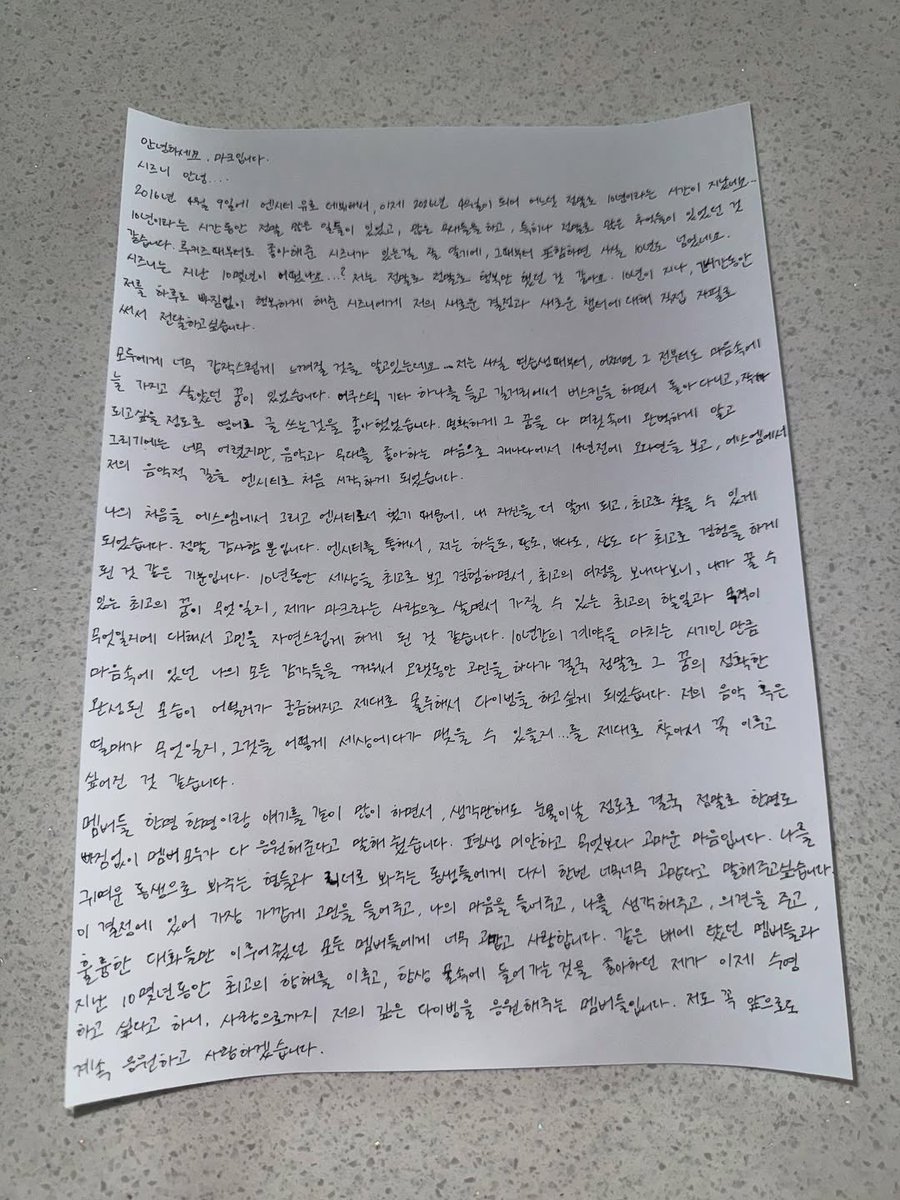 안녕하세요. 마크입니다.
시즈니 안녕....
2016년 4월 9일에 엔시티 유로 데뷔해서, 이제 2026년 4월이 되어 어느덧 정말로 10년이라는 시간이 지났네요...
10년이라는 시간동안 정말 많은 일들이 있었고, 많은 무대들을 하고, 특히나 정말로 많은 추억들이 있었던 것
같습니다. 루키즈 때부터도 좋아해준 시즈니가 있는걸 잘 알기에, 그때부터 포함하면 사실 10년도 넘었네요.
시즈니는 지난 10몇년이 어땠나요...? 저는 정말로 정말로 행복만 했던 것 같아요. 10년이 지나, 긴시간동안
저를 하루도 빠짐없이 행복하게 해준 시즈니에게 저의 새로운 결정과 새로운 챕터에 대해 직접 자필로
써서 전달하고싶습니다.
모두에게 너무 갑작스럽게 느껴질 것을 알고있는데요... 저는 사실 연습생때부터, 어쩌면 그 전부터도 마음속에
늘 가지고 살았던 꿈이 있었습니다. 어쿠스틱 기타 하나를 들고 길거리에서 버스킹을 하면서 돌아다니고,
되고싶을 정도로 영어로 글 쓰는것을 좋아했었습니다. 명확하게 그 꿈을 다 머릿속에 완벽하게 알고
그리기에는 너무 어렸지만, 음악과 무대를 좋아하는 마음으로 캐나다에서 14년전에 오디션을 보고, 에스엠에서
저의 음악적 길을 엔시티로 처음 시작하게 되었습니다.
나의 처음을 에스엠에서 그리고 엔시티로서 했기 때문에, 내 자신을 더 알게 되고, 최고로 찾을 수 있게
되었습니다. 정말 감사할 뿐입니다. 엔시티를 통해서, 저는 하늘도, 땅도, 바다도, 산도 다 최고로 경험을 하게
된 것 같은 기분입니다. 10년동안 세상을 최고로 보고 경험하면서, 최고의 여정을 보내다보니, 내가 꿀 수
있는 최고의 꿈이 무엇일지, 제가 마크라는 사람으로 살면서 가질 수 있는 최고의 할일과 목적이
무엇일지에 대해서 고민을 자연스럽게 하게 된 것 같습니다. 10년간의 계약을 마치는 시기인 만큼
마음속에 있던 나의 모든 감각들을 깨워서 오랫동안 고민을 하다가 결국 정말로 그 꿈의 정확한
완성된 모습이 어떨지가 궁금해지고 제대로 몰두해서 다이빙을 하고싶게 되었습니다. 저의 음악 혹은
열매가 무엇일지, 그것을 어떻게 세상에다가 맺을 수 있을지...를 제대로 찾아서 꼭 이루고
싶어진 것 같습니다.
멤버들 한명 한명이랑 얘기를 같이 많이 하면서, 생각만해도 눈물이날 정도로 결국 정말로 한명도
빠짐없이 멤버 모두가 다 응원해준다고 말해줬습니다. 평생 미안하고 무엇보다 고마운 마음입니다. 나를
귀여운 동생으로 봐주는 형들과 리더로 봐주는 동생들에게 다시 한번 너무너무 고맙다고 말해주고싶습니다.
이 결정에 있어 가장 가깝게 고민을 들어주고, 나의 마음을 들어주고, 나를 생각해주고, 의견을 주고,
훌륭한 대화들만 이루어줬던 모든 멤버들에게 너무 고맙고 사랑합니다. 같은 배에 탔던 멤버들과
지난 10몇년동안 최고의 항해를 이루고, 항상 물속에 들어가는 것을 좋아하던 제가 이제 수영
하고 싶다고 하니, 사랑으로까지 저의 깊은 다이빙을 응원해주는 멤버들입니다. 저도 꼭 앞으로도
계속 응원하고 사랑하겠습니다.